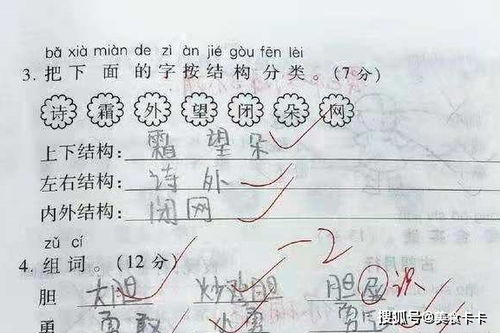 bǎ xià miàn de zì àn jié gòu fēn lèi
3. 把下面的字按结构分类。(7分)
诗 霜 外 望 闭 朵 网
上下结构: 霜 望 朵
左右结构: 诗 外
内外结构: 闭 网
zǔ cí
-2
4. 组词。(12分)
胆 大胆 炒鸡胆 胆
勇 勇敢
搜狐号@美食卡卡